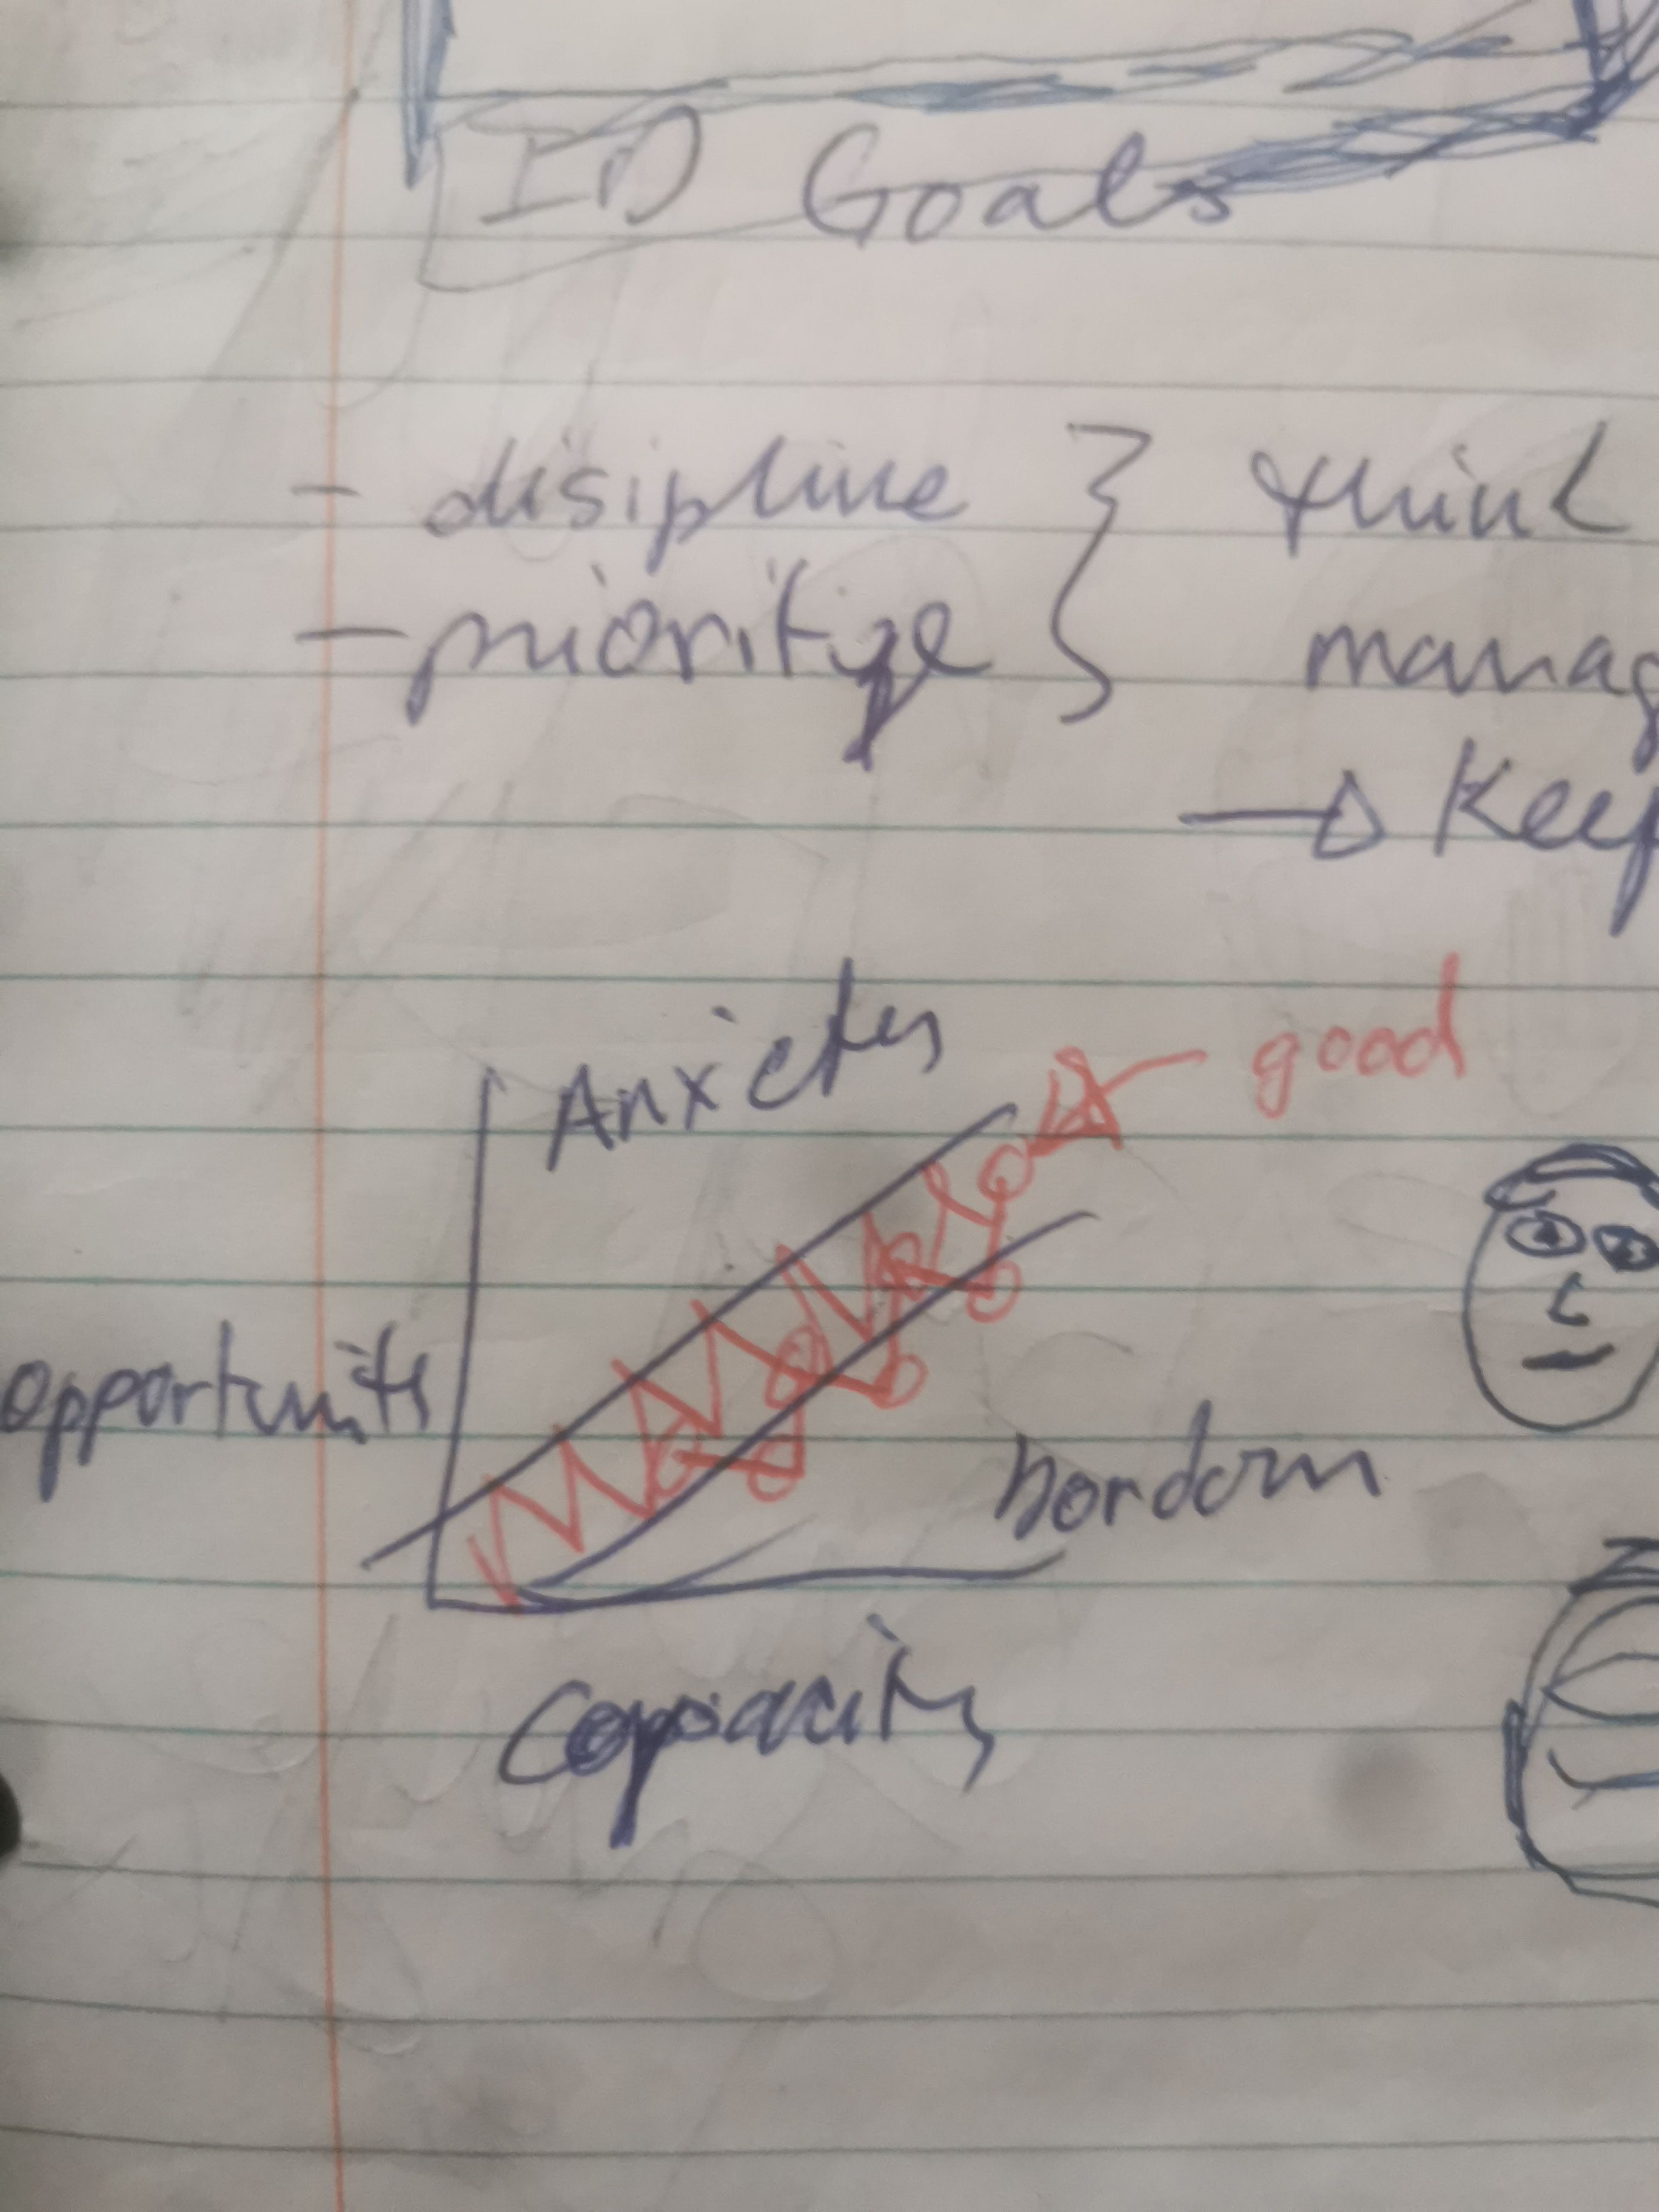 ID Goals
- disipline } think
- prioritize manag
→ Keep
Anxiety
good
opportunits
bordom
Capacity